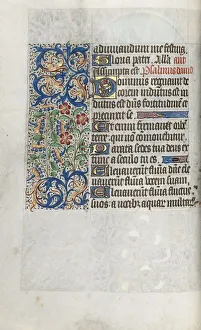 ad iuuandum me festina
Gloria patri. Alla an̄
assumpta est Psalmus dauid
Dominus regnauit de
corem indutus est in
dutus est d̄ns fortitudinē et
precinxit se
Et enim firmauit orbē
terre: qui non comouebitur
Parata sedes tua deus ex
a seculo tu es
Eleuauerūt flumīa dn̄e ele
uauerūt flumīa vocem suam,
Eleuauerūt flumīa fluctus
suos: a vocibꝫ aquar̄ multar̄